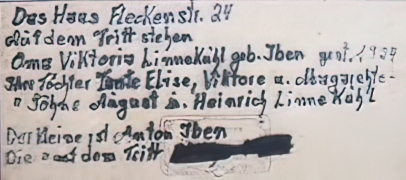 Das Haus Fleckenstr. 24
Auf dem Tritt stehen
Oma Viktoria Linnekühl geb. Iben gest. 1934
Ihre Töchter Tante Elise, Viktore u. Margarehte
" Söhne August u. Heinrich Linne Kühl
Der kleine ist Anton Iben
Die auf dem Tritt